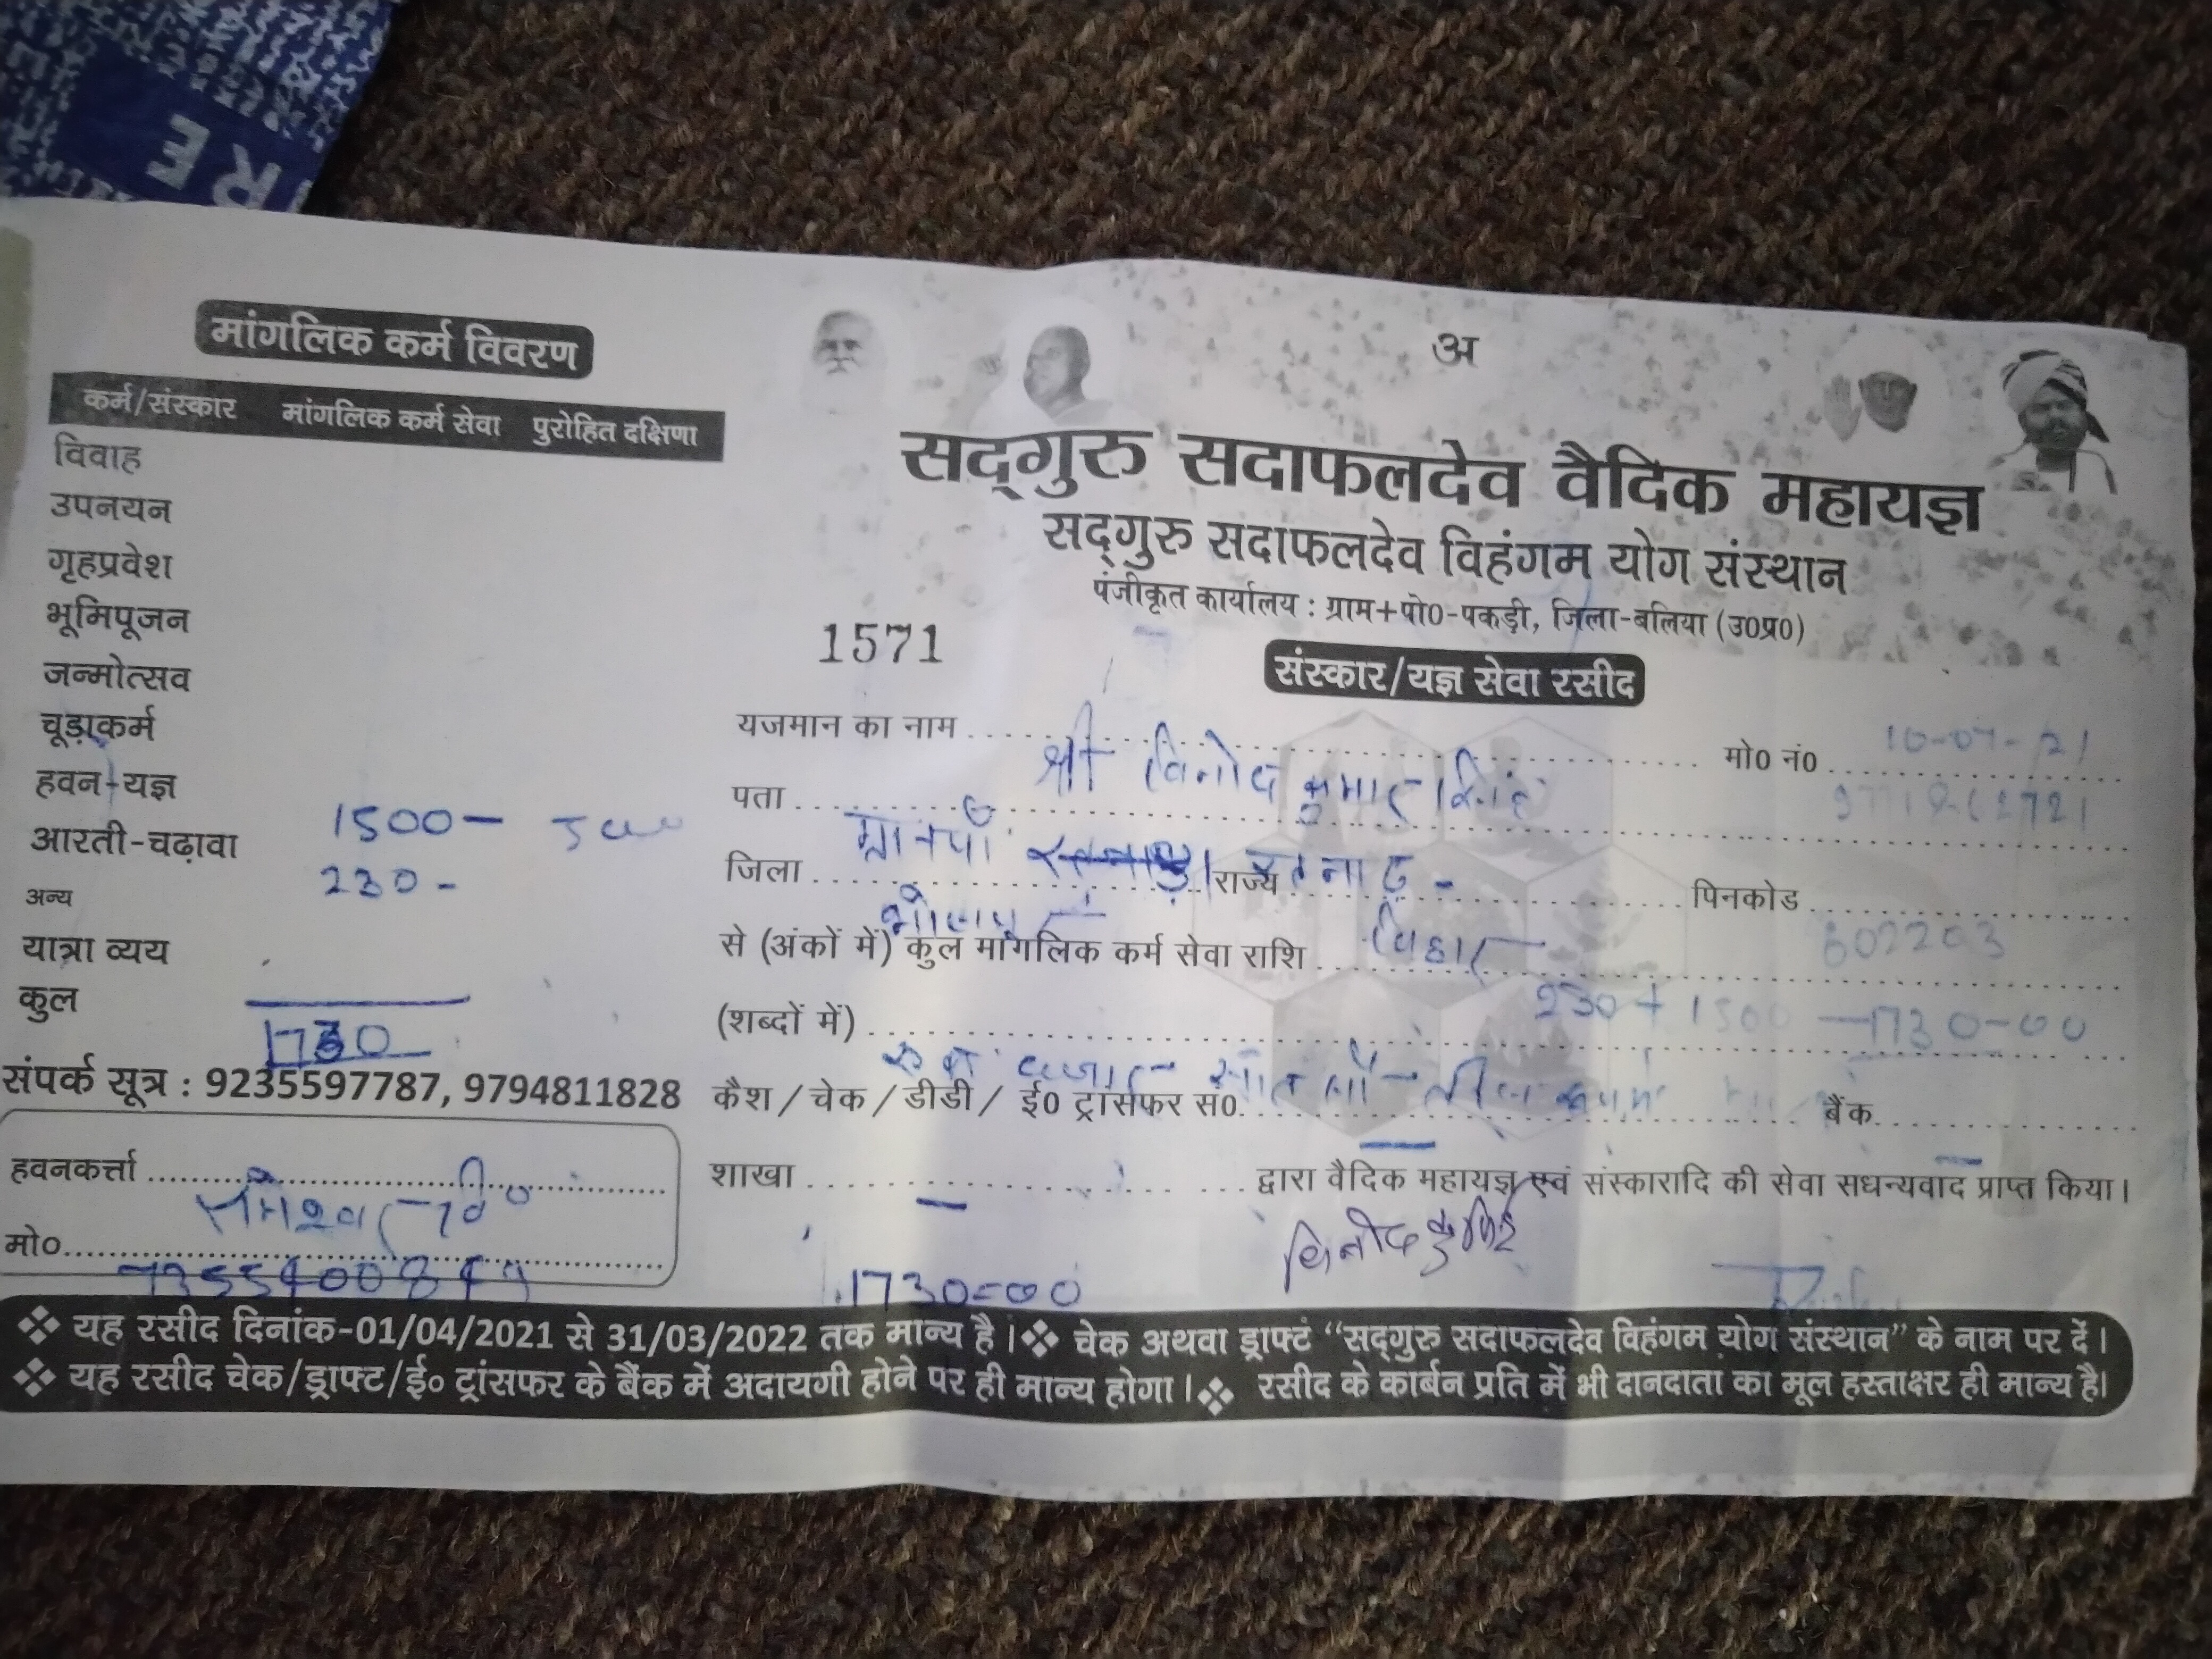 RE
मांगलिक कर्म विवरण
कर्म/संस्कार मांगलिक कर्म सेवा पुरोहित दक्षिणा
विवाह
उपनयन
गृहप्रवेश
भूमिपूजन
जन्मोत्सव
चूड़ाकर्म
हवन-यज्ञ
1500-
आरती-चढ़ावा
230-
अन्य
यात्रा व्यय
कुल
1730
संपर्क सूत्र : 9235597787, 9794811828
हवनकर्त्ता
मो०
अ
सद्गुरु सदाफलदेव वैदिक महायज्ञ
सद्गुरु सदाफलदेव विहंगम योग संस्थान
पंजीकृत कार्यालय : ग्राम+पो0-पकड़ी, जिला-बलिया (उ0प्र0)
1571
संस्कार/यज्ञ सेवा रसीद
यजमान का नाम श्री विनोद कुमार सिंह मो0 नं0
पता
जिला राज्य पिनकोड
बिहार 802203
से (अंकों में) कुल मांगलिक कर्म सेवा राशि
230+1500-1730-00
(शब्दों में)
कैश/चेक/डीडी/ ई0 ट्रांसफर सं0 बैंक
शाखा द्वारा वैदिक महायज्ञ एवं संस्कारादि की सेवा सधन्यवाद प्राप्त किया।
1730=00
❖ यह रसीद दिनांक-01/04/2021 से 31/03/2022 तक मान्य है। ❖ चेक अथवा ड्राफ्ट “सद्गुरु सदाफलदेव विहंगम योग संस्थान” के नाम पर दें।
❖ यह रसीद चेक/ड्राफ्ट/ई० ट्रांसफर के बैंक में अदायगी होने पर ही मान्य होगा। ❖ रसीद के कार्बन प्रति में भी दानदाता का मूल हस्ताक्षर ही मान्य है।